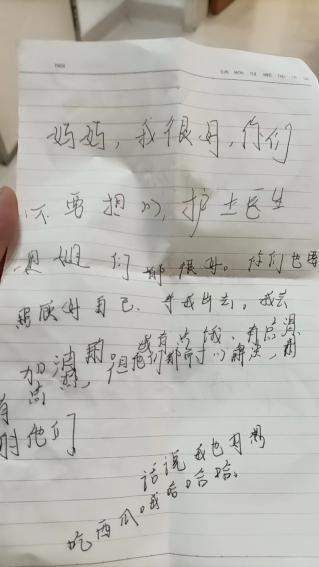 SUN MON TUE WED THU FRI
妈妈，我很好，你们
不要担心，护士医生
姐 们都很好。你们也要
照顾好自己，等我出去，我去
我有点饿，有点渴
加 点 但他们都 以解决，
他们
话说我也有想
吃西瓜。哈哈哈哈。